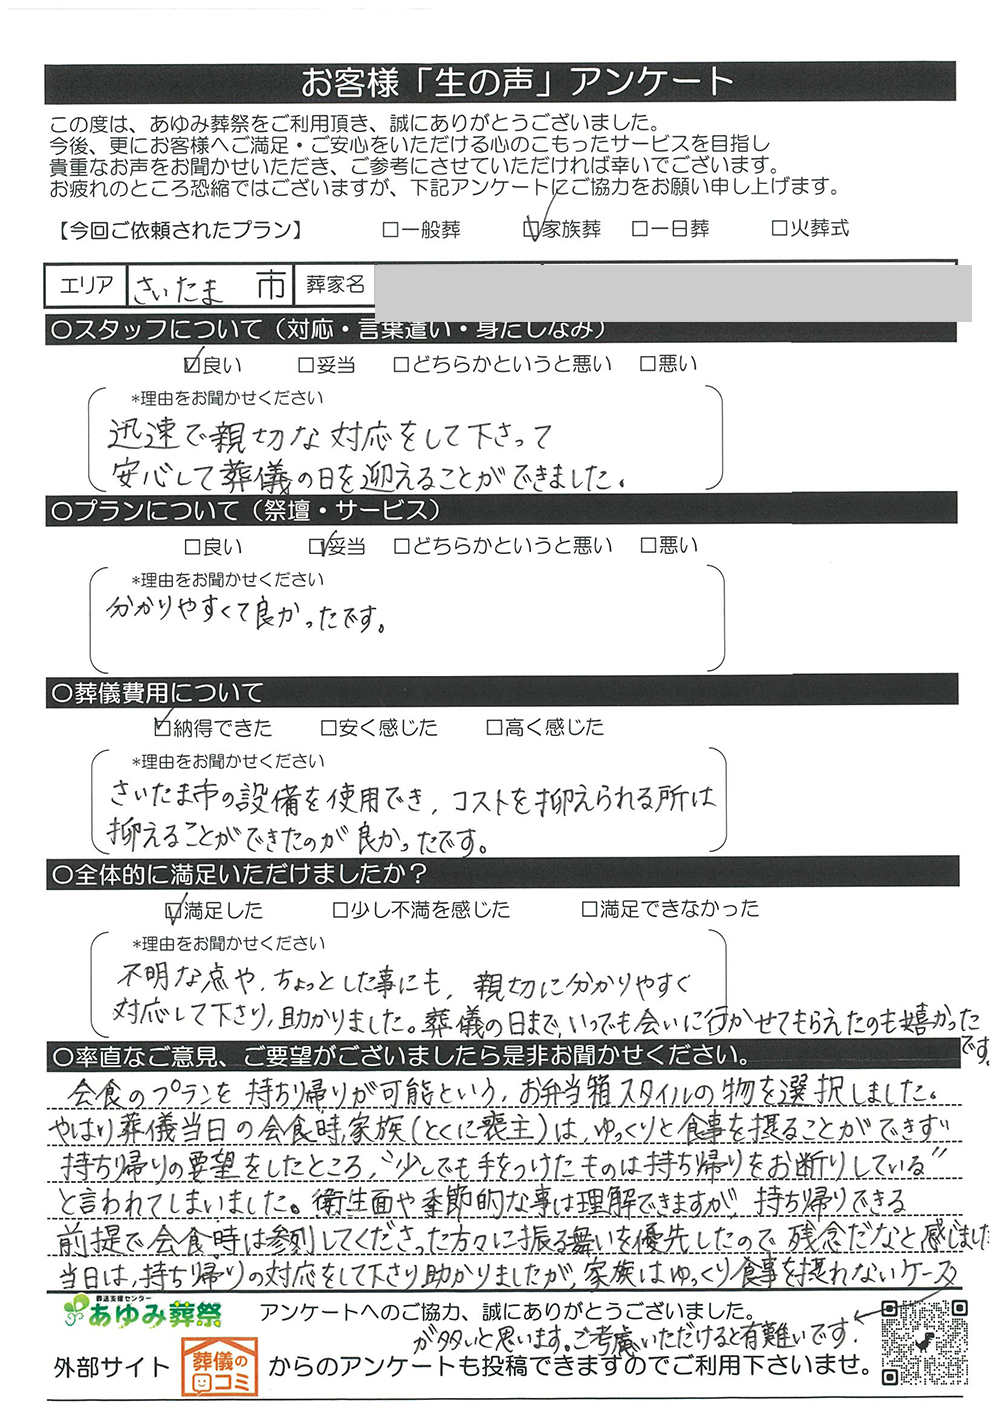 お客様「生の声」アンケート
この度は、あゆみ葬祭をご利用頂き、誠にありがとうございました。
今後、更にお客様へご満足・ご安心をいただける心のこもったサービスを目指し
貴重なお声をお聞かせいただき、ご参考にさせていただければ幸いでございます。
お疲れのところ恐縮ではございますが、下記アンケートにご協力をお願い申し上げます。
【今回ご依頼されたプラン】 □一般葬 ☑家族葬 □一日葬 □火葬式
エリア さいたま 市 葬家名
〇スタッフについて（対応・言葉遣い・身だしなみ）
☑良い □妥当 □どちらかというと悪い □悪い
*理由をお聞かせください
迅速で親切な対応をして下さって
安心して葬儀の日を迎えることができました。
〇プランについて（祭壇・サービス）
□良い ☑妥当 □どちらかというと悪い □悪い
*理由をお聞かせください
分かりやすくて良かったです。
〇葬儀費用について
☑納得できた □安く感じた □高く感じた
*理由をお聞かせください
さいたま市の設備を使用でき、コストを抑えられる所は
抑えることができたのが良かったです。
〇全体的に満足いただけましたか？
☑満足した □少し不満を感じた □満足できなかった
*理由をお聞かせください
不明な点や、ちょっとした事にも、親切に分かりやすく
対応して下さり、助かりました。葬儀の日まで、いつでも会いに行かせてもらえたのも嬉かった
です。
〇率直なご意見、ご要望がございましたら是非お聞かせください。
会食のプランを持ち帰りが可能という、お弁当箱スタイルの物を選択しました。
やはり葬儀当日の会食時、家族(とくに喪主)は、ゆっくりと食事を摂ることができず
持ち帰りの要望をしたところ、"少しでも手をつけたものは持ち帰りをお断りしている"
と言われてしまいました。衛生面や季節的な事は理解できますが、持ち帰りできる
前提で会食時は参列してくださった方々に振る舞いを優先したので残念だなと感じました
当日は、持ち帰りの対応をして下さり助かりましたが、家族はゆっくり食事を摂れないケース
葬送支援センター
あゆみ葬祭 アンケートへのご協力、誠にありがとうございました。
が多いと思います。ご考慮いただけると有難いです。
外部サイト 葬儀の口コミ からのアンケートも投稿できますのでご利用下さいませ。